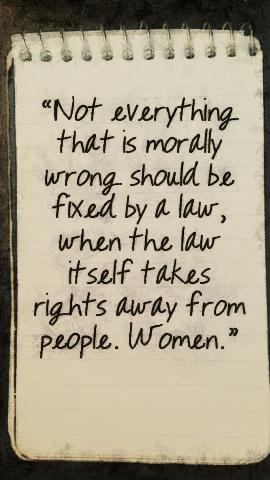 “Not everything
that is morally
wrong should be
fixed by a law,
when the law
itself takes
rights away from
people. Women.”